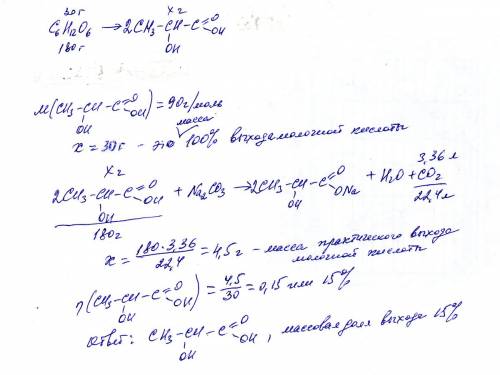 30г х г
C6H12O6 → 2CH3-CH-C=O OH
180г OH
M(CH3-CH-C=O OH) = 90г/моль
OH
масса
x = 30г - это 100% выхода молочной кислоты
х г 3,36 л
2CH3-CH-C=O OH + Na2CO3 → 2CH3-CH-C=O ONa + H2O + CO2
OH OH
180г 22,4л
x = 180·3,36 / 22,4 = 4,5г - масса практического выхода
молочной кислоты
η(CH3-CH-C=O OH) = 4,5 / 30 = 0,15 или 15%
OH
Ответ: CH3-CH-C=O OH, массовая доля выхода 15%
OH